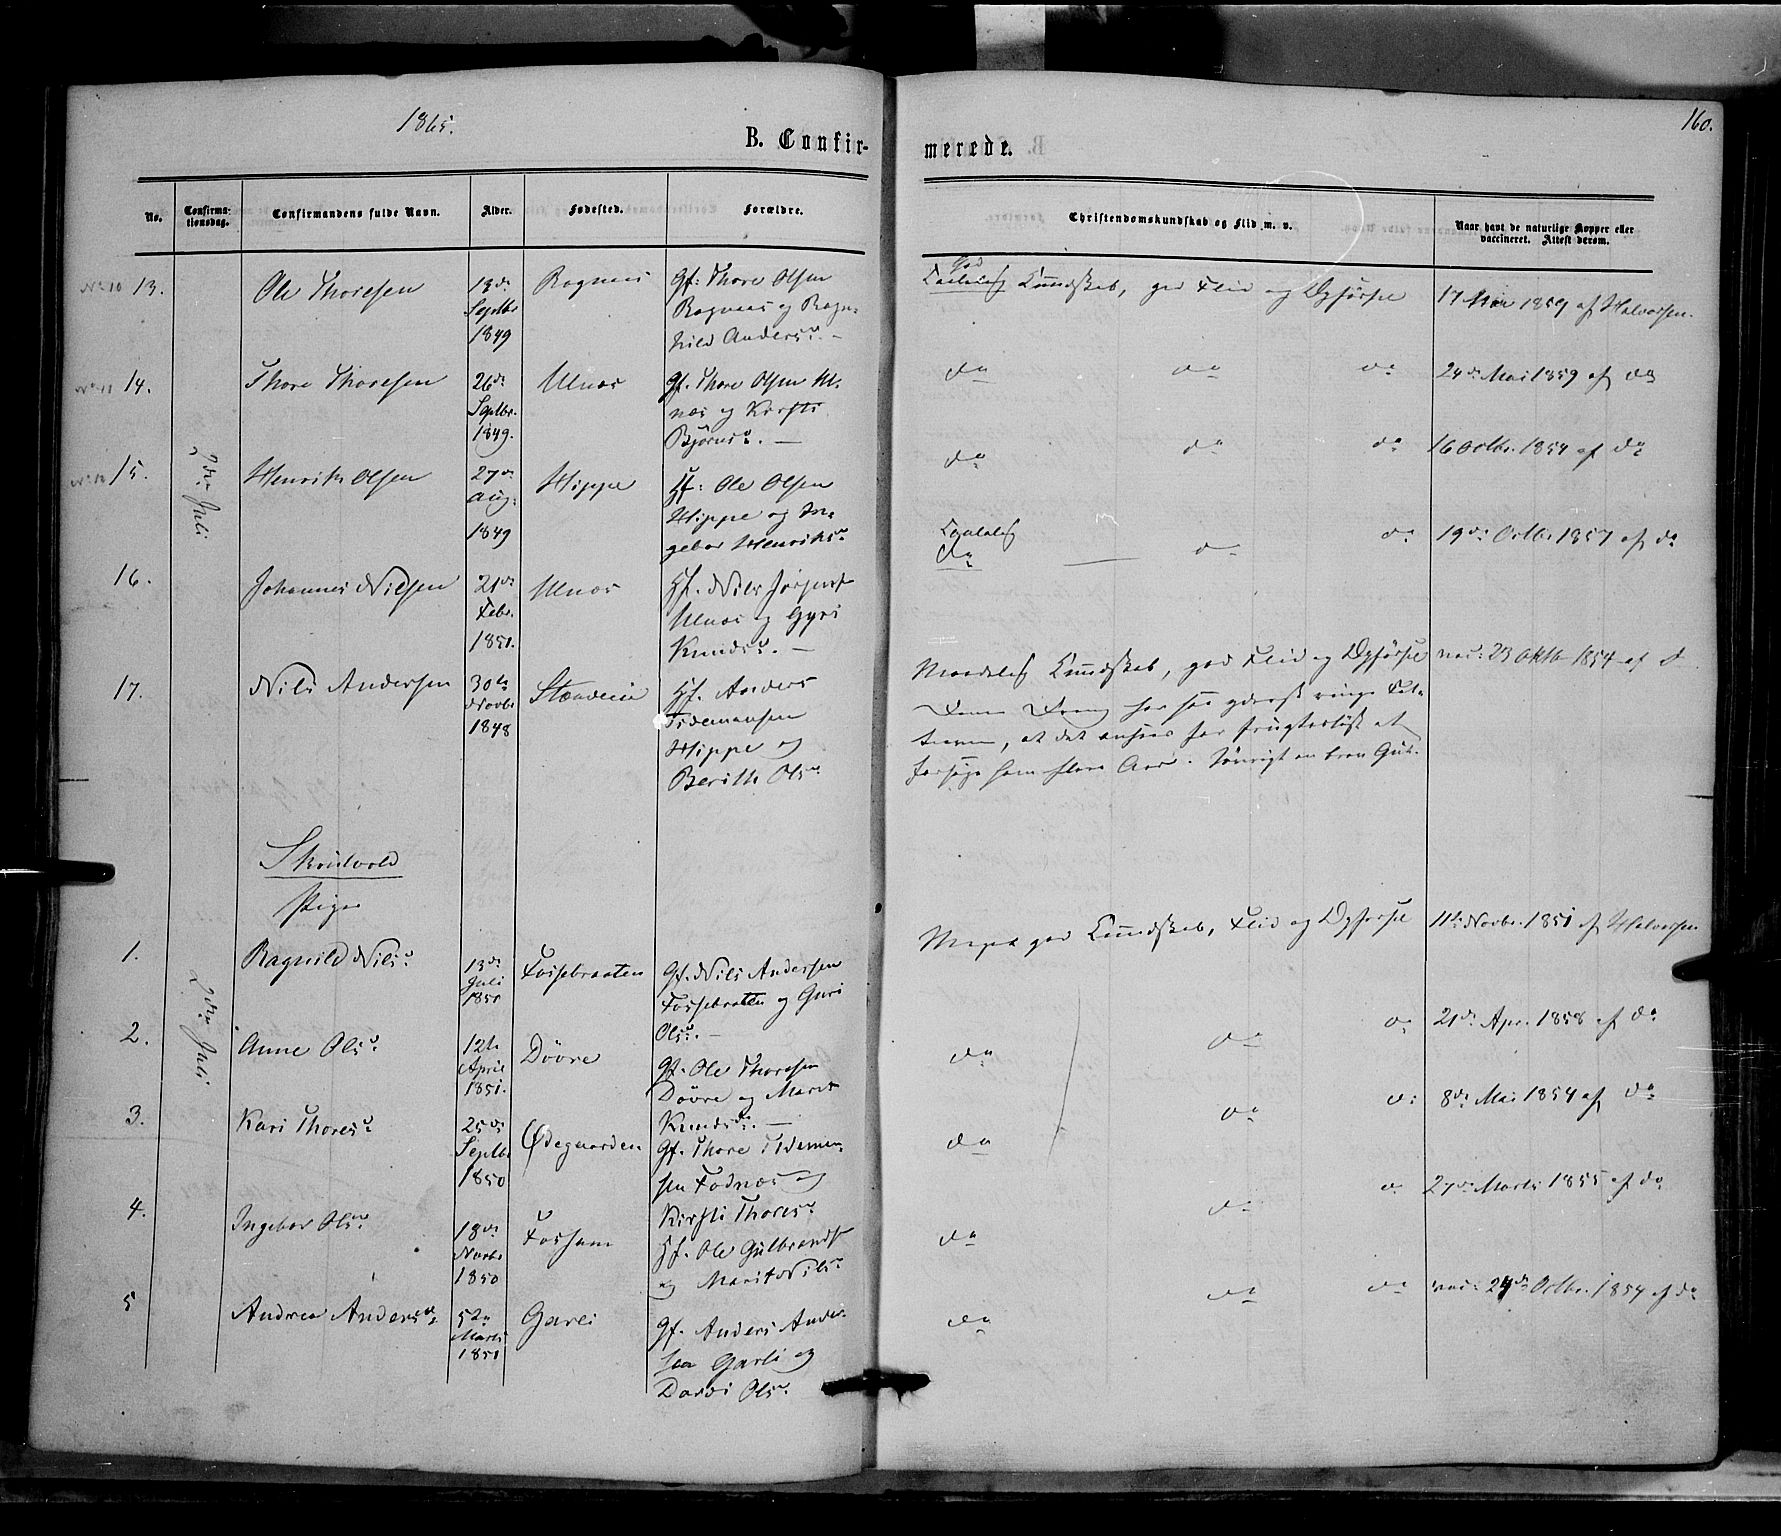 1865.
160.
B. Confir-
merede.
No.
Confirma-
tionsdag.
Confirmandens fulde Navn.
Alder.
Fødested.
Forældre.
Christendomskundskab og Flid m. v.
Naar havt de naturlige Kopper eller
vaccineret. Attest derom.
No 10 13.
Ole Thoresen
13de
Septbr
1849
Ragnes
Gf: Thore Olsen
Ragnaas og Ragn-
hild Andersd. —
God
Taalelig Kundskab, god Flid og Opførsel
17 Mai 1859 af Halvorsen.
No 11 14.
Thore Thoresen
26de
Septbr.
1849.
Ulnes
Gf. Thore Olsen Ul-
nes og Kirsti
Bjørnsd. —
do do do
24de Mai 1859 af do
2den Juli
No 12 15.
Henrik Olsen
27de
Aug:
1849
Hippe
Hf: Ole Olsen
Hippe og In-
gebor Henriksd
do do do
16 Octbr. 1854 af do
16.
Johannes Nilsen
21de
Febr.
1850.
Ulnes
Hf. Nils Jørgens
Ulnes og Gyri
Knudsd. —
Taalelig
do — do do
19de Octbr 1857 af do
17.
Nils Andersen
30te
Novbr
1848
Stændeie
Hf. Anders
Tidemansen
Hippe og
Berith Olsd
Maadelig Kundskab, god Flid og Opførsel
Denne Dreng har saa yderst ringe Fat-
tevne, at det ansees for frugtesløst at
forsøge ham flere Aar. Iøvrigt en brav Gut.
vac: 23 Oktb 1854 af d
Skrutvold
Piger
1.
Ragnild Nilsd
13de
Juli
1850
Fossebraaten
Gf. Nils Andersen
Fossebraaten og Guri
Olsd. —
Meget god Kundskab, Flid og Opførsel
11te Novbr. 1851 af Halvorsen
2den Juli
2.
Anne Olsd
12te
April
1851.
Døvre
Gf. Ole Thoresen
Døvre og Marit
Knudsd. —
do do do
21de Apr. 1858 af do
3.
Kari Thoresd
25de
Septbr
1850
Ødegaarden
Gf. Thore Tideman-
sen Fodnæs og
Kirsti Thoresd
do do do
8de Mai 1854 af do
4.
Ingebor Olsd
18de
Novbr
1850
Fosheim
Hf. Ole Gulbrands
og Marit Nilsd
do do do
27de Marts 1855 af do
5
Andrea Andersd
5te
Marts
1850
Garli
Gf. Anders Ander-
sen Garli og
Dordi Olsd
do do do
vac: 24de Octbr. 1854 af do